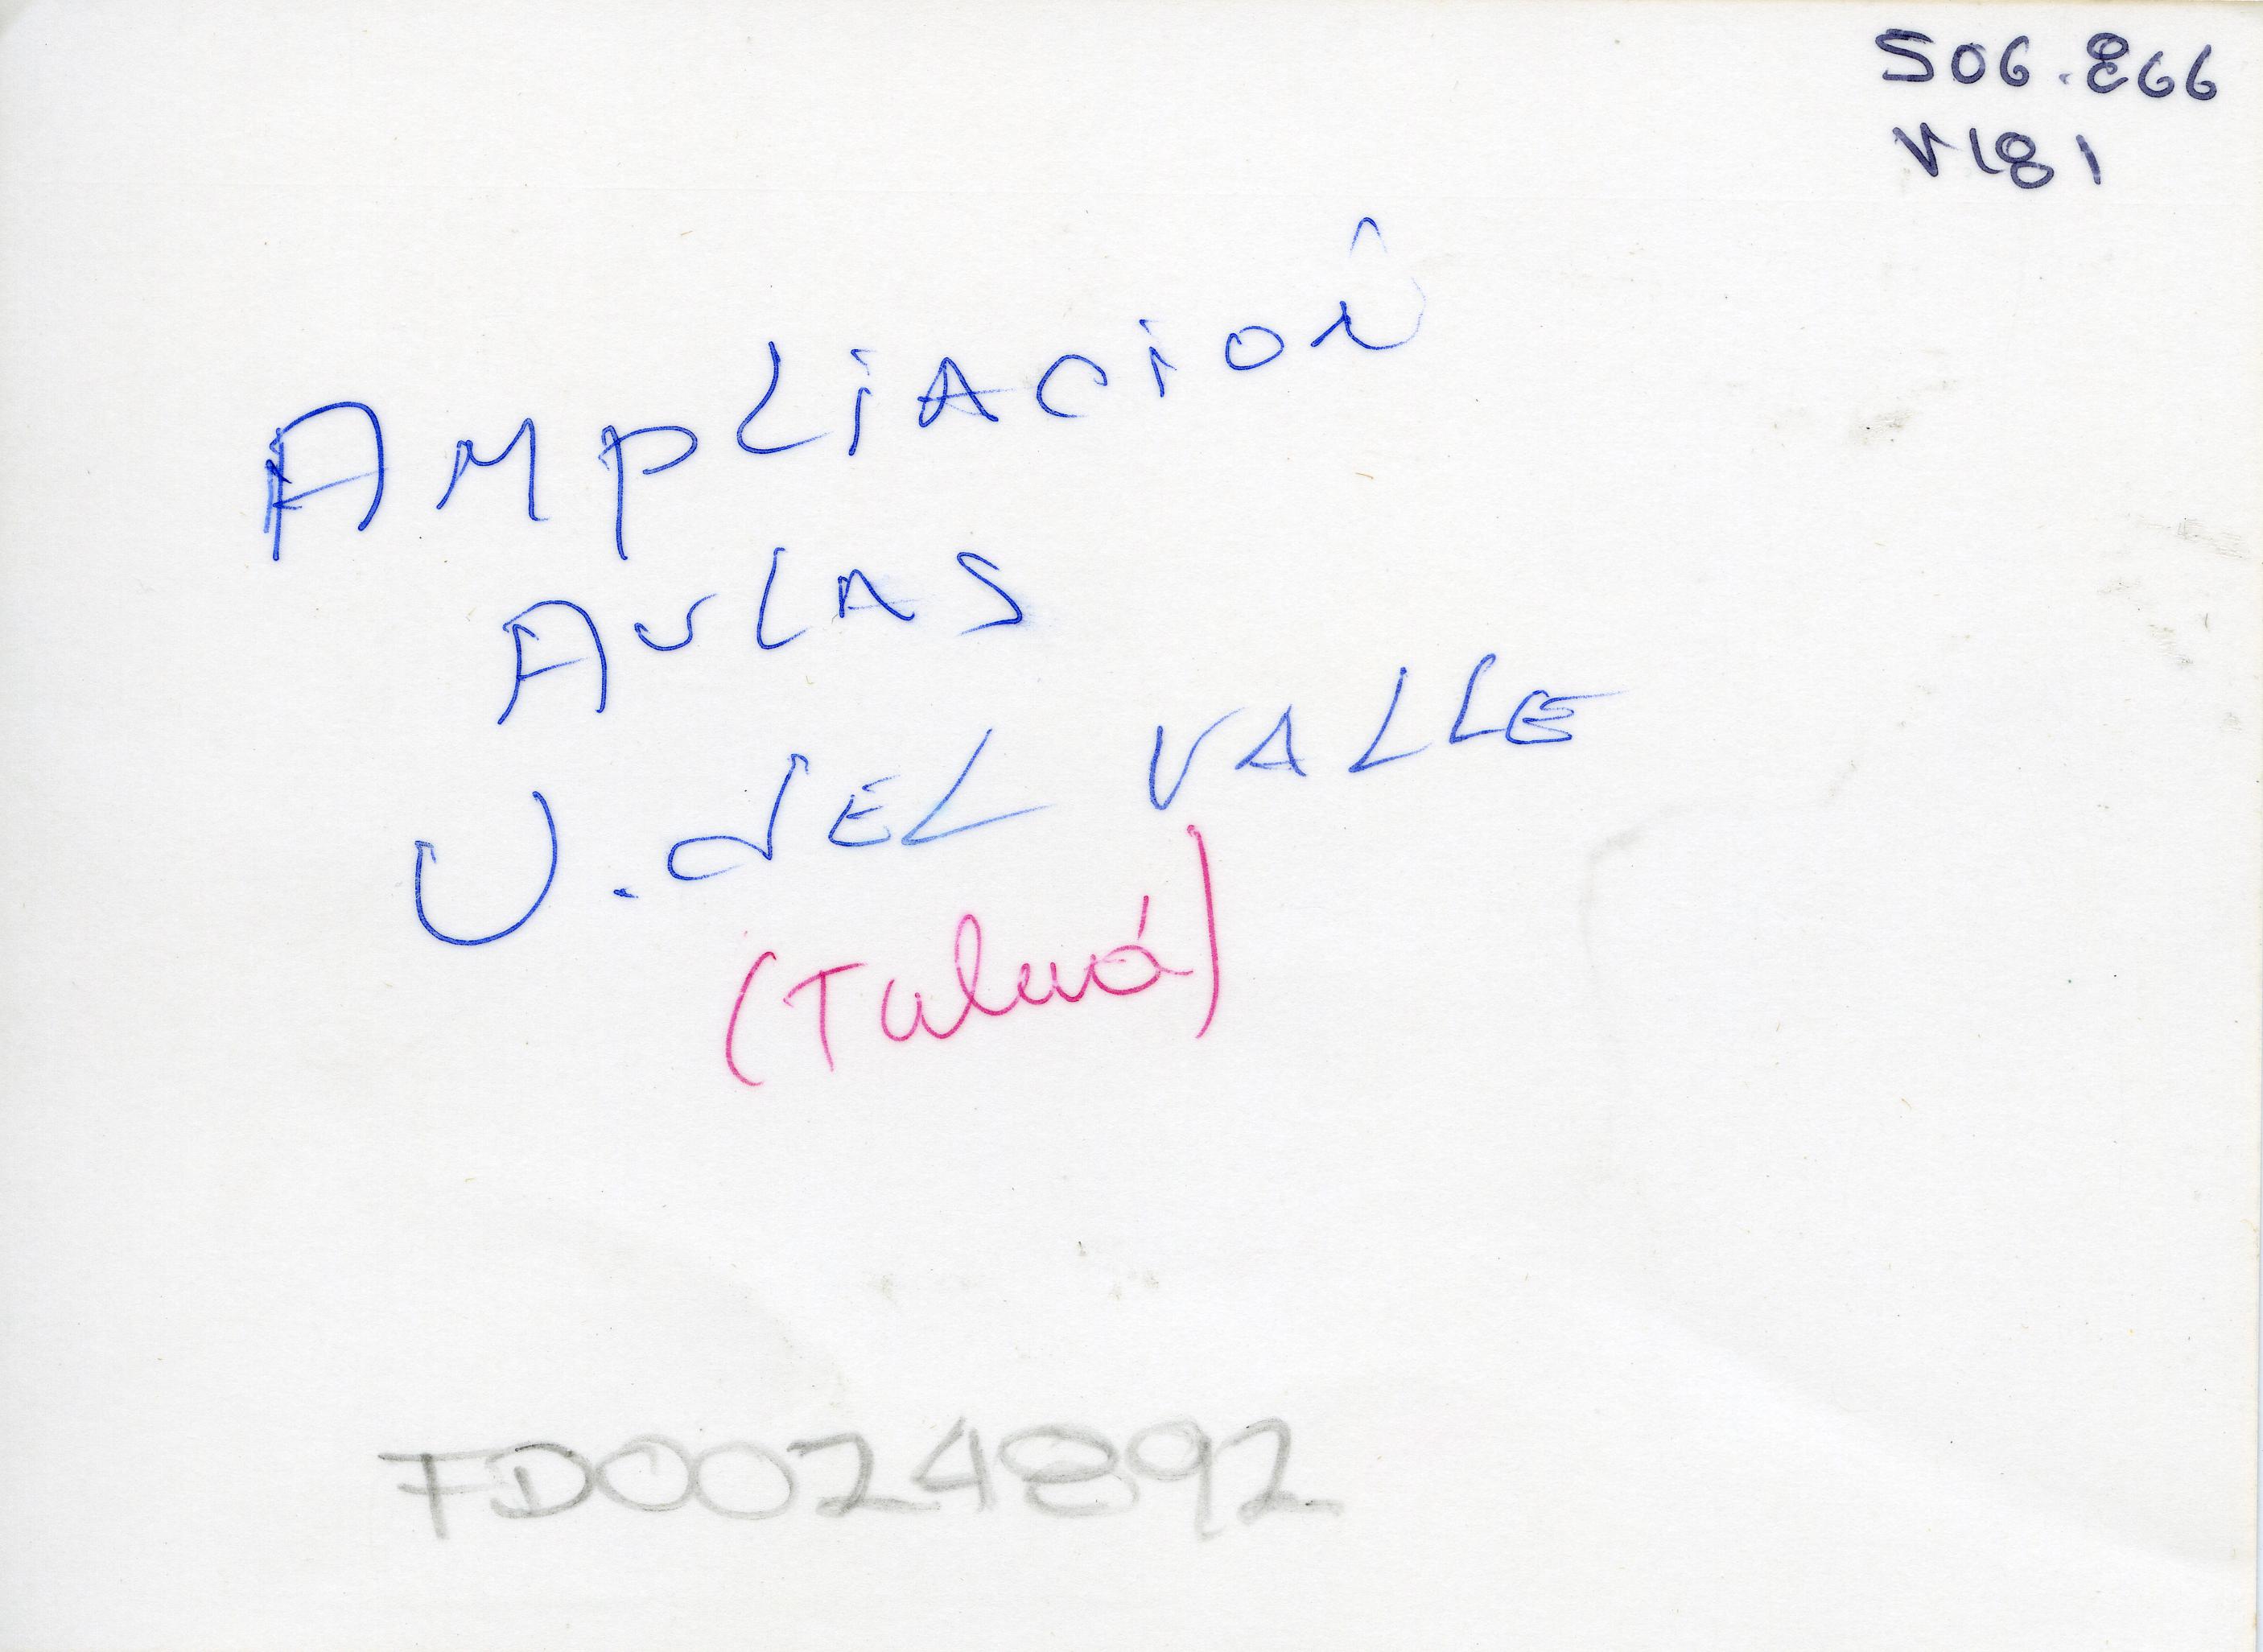 S06.866
V181
AMPLiACiON
AULAS
U. dEL VALLE
(Tuluá)
FD0024892